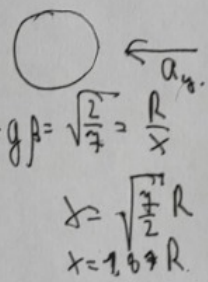 a_y.
gβ = √(2/7) = R/x
x = √(7/2) R
x = 1,87 R.